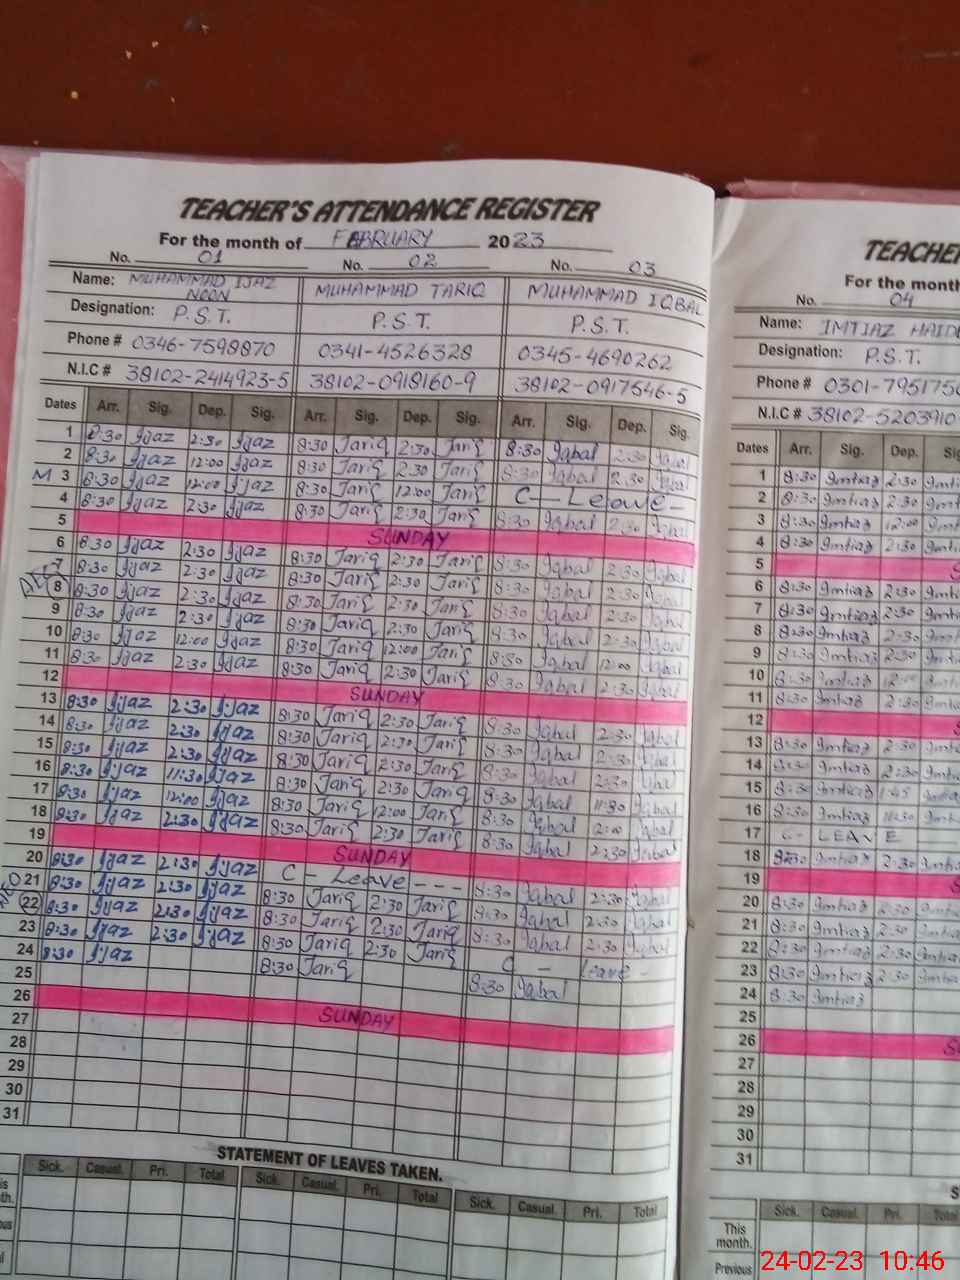 TEACHER'S ATTENDANCE REGISTER
For the month of FEBRUARY 2023
No. 01 No. 02 No. 03
Name: MUHAMMAD IJAZ NOON MUHAMMAD TARIQ MUHAMMAD IQBAL
Designation: P.S.T. P.S.T. P.S.T.
Phone # 0346-7598870 0341-4526328 0345-4690262
N.I.C # 38102-2414923-5 38102-0918160-9 38102-0917546-5
Dates Arr. Sig. Dep. Sig. Arr. Sig. Dep. Sig. Arr. Sig. Dep. Sig.
1 8:30 Ijaz 2:30 Ijaz 8:30 Tariq 2:30 Tariq 8:30 Iqbal 2:30 Iqbal
2 8:30 Ijaz 12:00 Ijaz 8:30 Tariq 2:30 Tariq 8:30 Iqbal 2:30 Iqbal
M 3 8:30 Ijaz 12:00 Ijaz 8:30 Tariq 12:00 Tariq C - Leave -
4 8:30 Ijaz 2:30 Ijaz 8:30 Tariq 2:30 Tariq 8:30 Iqbal 2:30 Iqbal
5 SUNDAY
6 8:30 Ijaz 2:30 Ijaz 8:30 Tariq 2:30 Tariq 8:30 Iqbal 2:30 Iqbal
7 8:30 Ijaz 2:30 Ijaz 8:30 Tariq 2:30 Tariq 8:30 Iqbal 2:30 Iqbal
8 8:30 Ijaz 2:30 Ijaz 8:30 Tariq 2:30 Tariq 8:30 Iqbal 2:30 Iqbal
9 8:30 Ijaz 2:30 Ijaz 8:30 Tariq 2:30 Tariq 8:30 Iqbal 2:30 Iqbal
10 8:30 Ijaz 12:00 Ijaz 8:30 Tariq 12:00 Tariq 8:30 Iqbal 12:00 Iqbal
11 8:30 Ijaz 2:30 Ijaz 8:30 Tariq 2:30 Tariq 8:30 Iqbal 2:30 Iqbal
12 SUNDAY
13 8:30 Ijaz 2:30 Ijaz 8:30 Tariq 2:30 Tariq 8:30 Iqbal 2:30 Iqbal
14 8:30 Ijaz 2:30 Ijaz 8:30 Tariq 2:30 Tariq 8:30 Iqbal 2:30 Iqbal
15 8:30 Ijaz 2:30 Ijaz 8:30 Tariq 2:30 Tariq 8:30 Iqbal 2:30 Iqbal
16 8:30 Ijaz 11:30 Ijaz 8:30 Tariq 2:30 Tariq 8:30 Iqbal 11:30 Iqbal
17 8:30 Ijaz 12:00 Ijaz 8:30 Tariq 12:00 Tariq 8:30 Iqbal Iqbal
18 8:30 Ijaz 2:30 Ijaz 8:30 Tariq 2:30 Tariq 8:30 Iqbal 2:30 Iqbal
19 SUNDAY
20 8:30 Ijaz 2:30 Ijaz C - Leave - - - 8:30 Iqbal 2:30 Iqbal
21 8:30 Ijaz 2:30 Ijaz 8:30 Tariq 2:30 Tariq 8:30 Iqbal 2:30 Iqbal
22 8:30 Ijaz 2:30 Ijaz 8:30 Tariq 2:30 Tariq 8:30 Iqbal 2:30 Iqbal
23 8:30 Ijaz 2:30 Ijaz 8:30 Tariq 2:30 Tariq C - Leave -
24 8:30 Ijaz 8:30 Tariq 8:30 Iqbal
25
26 SUNDAY
27
28
29
30
31
STATEMENT OF LEAVES TAKEN.
Sick. Casual. Pri. Total Sick. Casual. Pri. Total Sick. Casual. Pri. Total
TEACHE
For the month
No. 04
Name: IMTIAZ HAIDE
Designation: P.S.T.
Phone # 0301-795175
N.I.C # 38102-5203910-
Dates Arr. Sig. Dep. Sig
1 8:30 Imtiaz 2:30 Imti
2 8:30 Imtiaz 2:30 Imti
3 8:30 Imtiaz 12:00 Imti
4 8:30 Imtiaz 2:30 Imti
5 S
6 8:30 Imtiaz 2:30 Imti
7 8:30 Imtiaz 2:30 Imti
8 8:30 Imtiaz 2:30 Imti
9 8:30 Imtiaz 2:30 Imti
10 8:30 Imtiaz Imti
11 8:30 Imtiaz 2:30 Imti
12 S
13 8:30 Imtiaz 2:30 Imti
14 8:30 Imtiaz 2:30 Imti
15 8:30 Imtiaz Imtia
16 8:30 Imtiaz Imti
17 C- LEAVE
18 8:30 Imtiaz 2:30 Imti
19 S
20 8:30 Imtiaz 2:30 Imti
21 8:30 Imtiaz 2:30 Imti
22 8:30 Imtiaz 2:30 Imtia
23 8:30 Imtiaz 2:30 Imtia
24 8:30 Imtiaz
25
26 S
27
28
29
30
31
S
Sick. Casual. Pri. Total
This month.
Previous
24-02-23 10:46